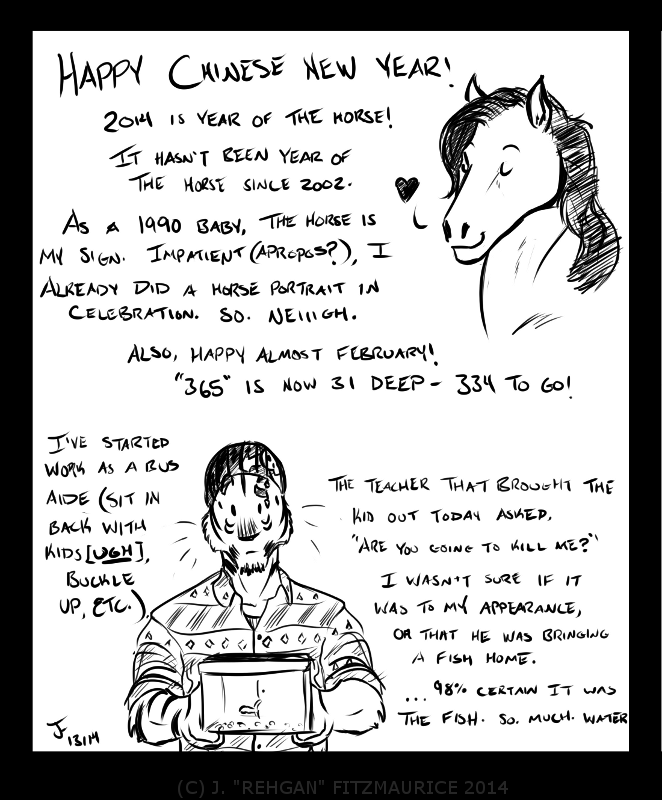 HAPPY CHINESE NEW YEAR!
2014 IS YEAR OF THE HORSE!
IT HASN'T BEEN YEAR OF
THE HORSE SINCE 2002.
AS A 1990 BABY, THE HORSE IS
MY SIGN. IMPATIENT (APROPOS?), I
ALREADY DID A HORSE PORTRAIT IN
CELEBRATION. SO. NEIIIGH.
ALSO, HAPPY ALMOST FEBRUARY!
"365" IS NOW 31 DEEP - 334 TO GO!
I'VE STARTED
WORK AS A BUS
AIDE (SIT IN
BACK WITH
KIDS [UGH],
BUCKLE
UP, ETC.)
THE TEACHER THAT BROUGHT THE
KID OUT TODAY ASKED,
"ARE YOU GOING TO KILL ME?"
I WASN'T SURE IF IT
WAS TO MY APPEARANCE,
OR THAT HE WAS BRINGING
A FISH HOME.
... 98% CERTAIN IT WAS
THE FISH. SO. MUCH. WATER
JF 13114
(C) J. "REHGAN" FITZMAURICE 2014